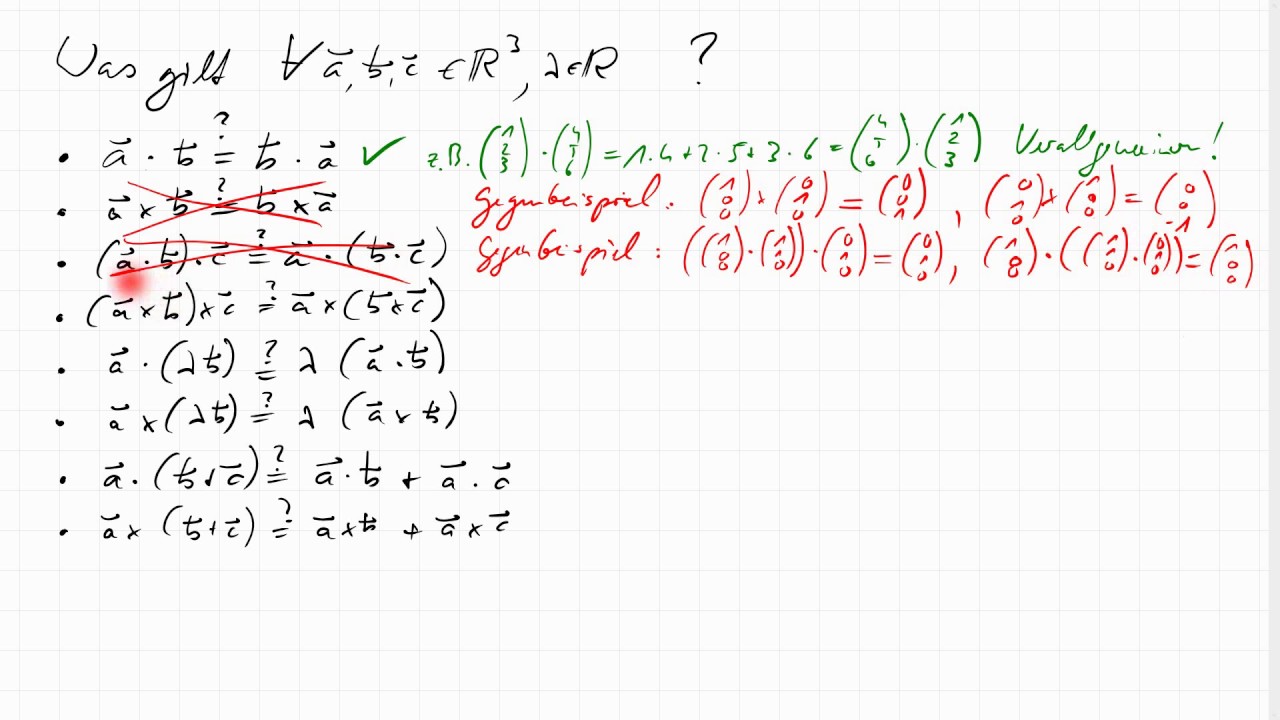 Was gilt ∀ a⃗, b⃗, c⃗ ∈ ℝ³, λ∈ℝ ?
• a⃗ · b⃗ ≟ b⃗ · a⃗ ✓ z.B. (1 2 3) · (4 5 6) = 1·4+2·5+3·6 = (4 5 6) · (1 2 3) Verallgemeinern!
• a⃗ × b⃗ ≟ b⃗ × a⃗ Gegenbeispiel: (1 0 0) × (0 1 0) = (0 0 1), (0 1 0) × (1 0 0) = (0 0 -1)
• (a⃗ · b⃗) · c⃗ ≟ a⃗ · (b⃗ · c⃗) Gegenbeispiel:
• (a⃗ × b⃗) × c⃗ ≟ a⃗ × (b⃗ × c⃗)
• a⃗ · (λb⃗) ≟ λ (a⃗ · b⃗)
• a⃗ × (λb⃗) ≟ λ (a⃗ × b⃗)
• a⃗ · (b⃗ + c⃗) ≟ a⃗ · b⃗ + a⃗ · c⃗
• a⃗ × (b⃗ + c⃗) ≟ a⃗ × b⃗ + a⃗ × c⃗